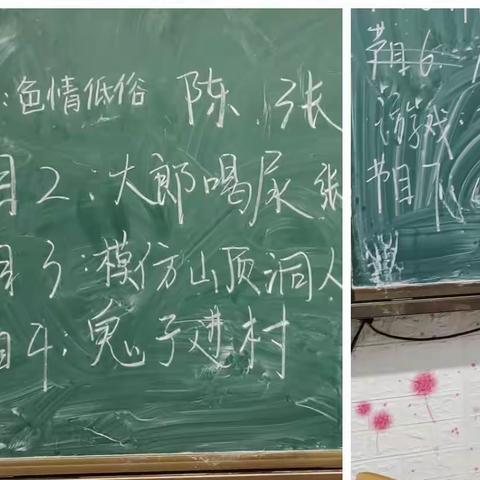 :色情低俗 陈 张
目2:大郎喝尿 张
目3:模仿山顶洞人
目4:鬼子进村
节目6
游戏:
节目7